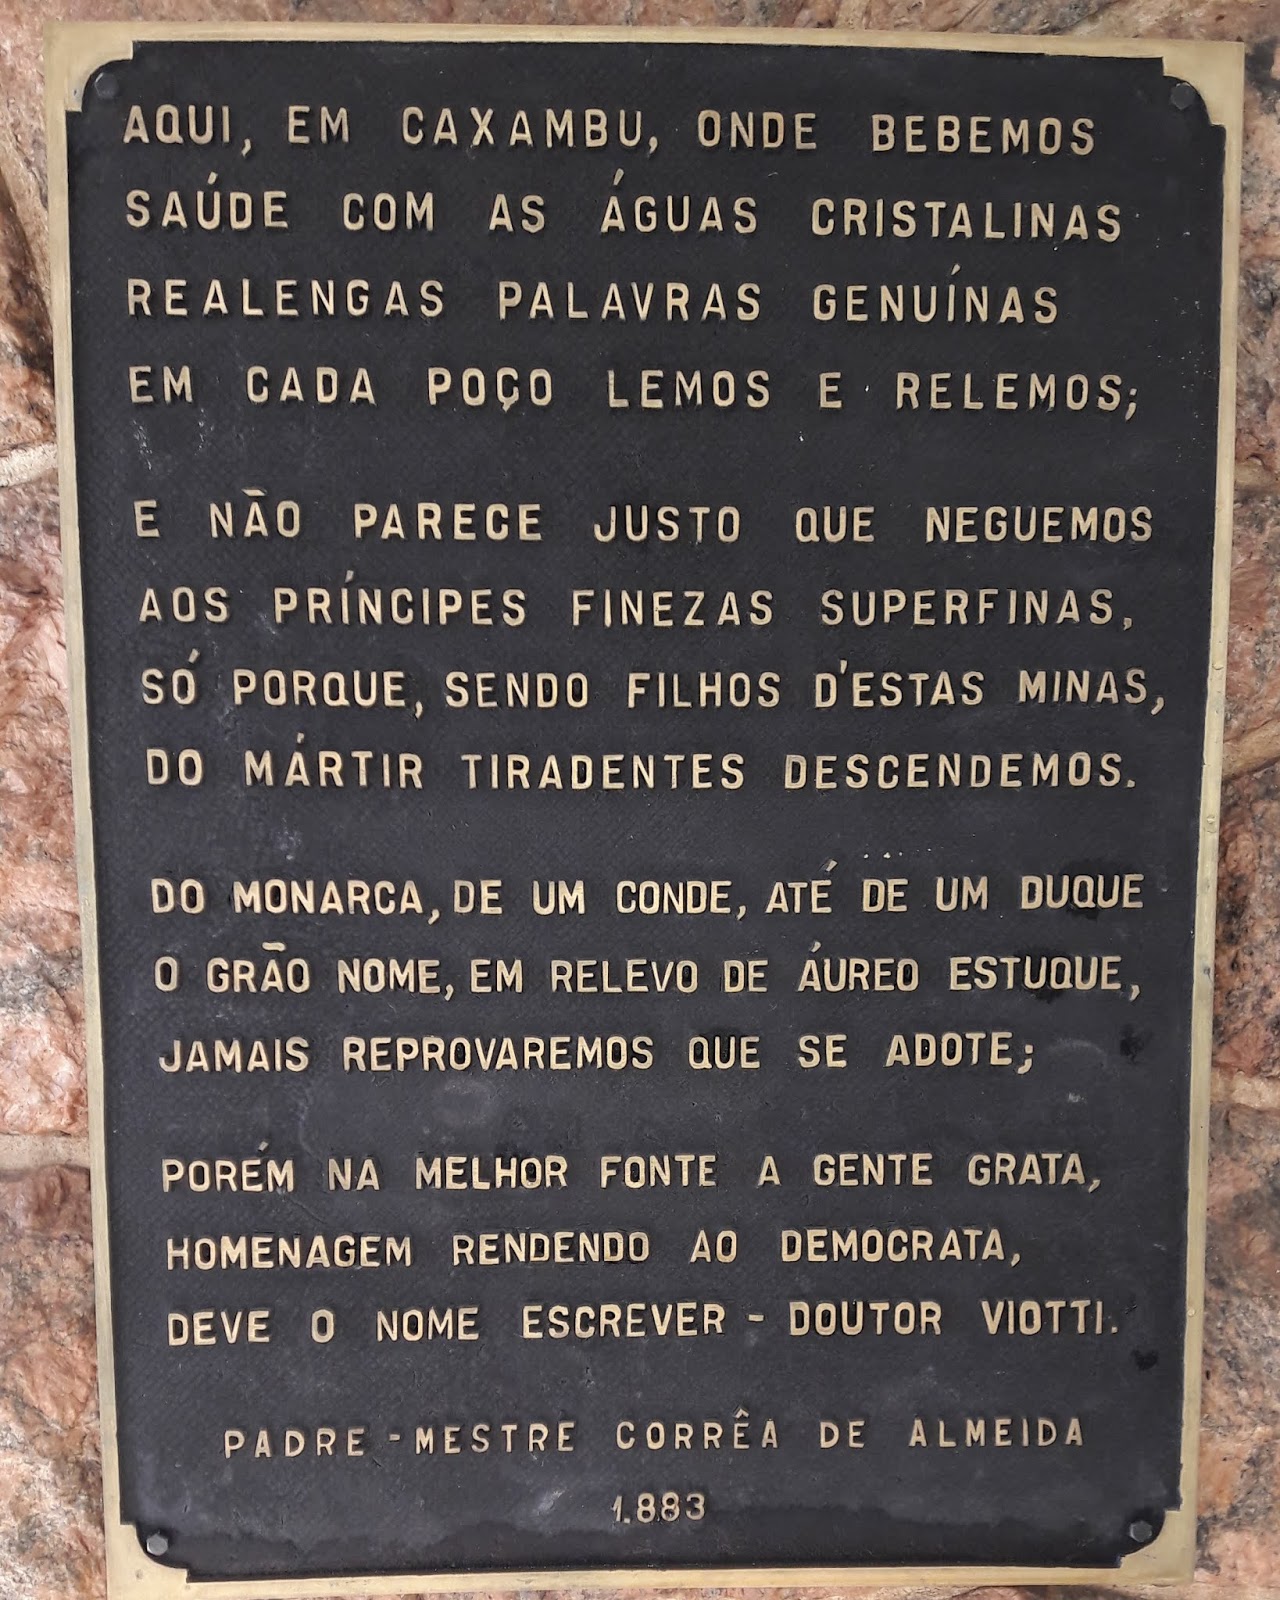 AQUI, EM CAXAMBU, ONDE BEBEMOS
SAÚDE COM AS ÁGUAS CRISTALINAS
REALENGAS PALAVRAS GENUÍNAS
EM CADA POÇO LEMOS E RELEMOS;
E NÃO PARECE JUSTO QUE NEGUEMOS
AOS PRÍNCIPES FINEZAS SUPERFINAS,
SÓ PORQUE, SENDO FILHOS D'ESTAS MINAS,
DO MÁRTIR TIRADENTES DESCENDEMOS.
DO MONARCA, DE UM CONDE, ATÉ DE UM DUQUE
O GRÃO NOME, EM RELEVO DE ÁUREO ESTUQUE,
JAMAIS REPROVAREMOS QUE SE ADOTE;
PORÉM NA MELHOR FONTE A GENTE GRATA,
HOMENAGEM RENDENDO AO DEMOCRATA,
DEVE O NOME ESCREVER - DOUTOR VIOTTI.
PADRE-MESTRE CORRÊA DE ALMEIDA
1.883